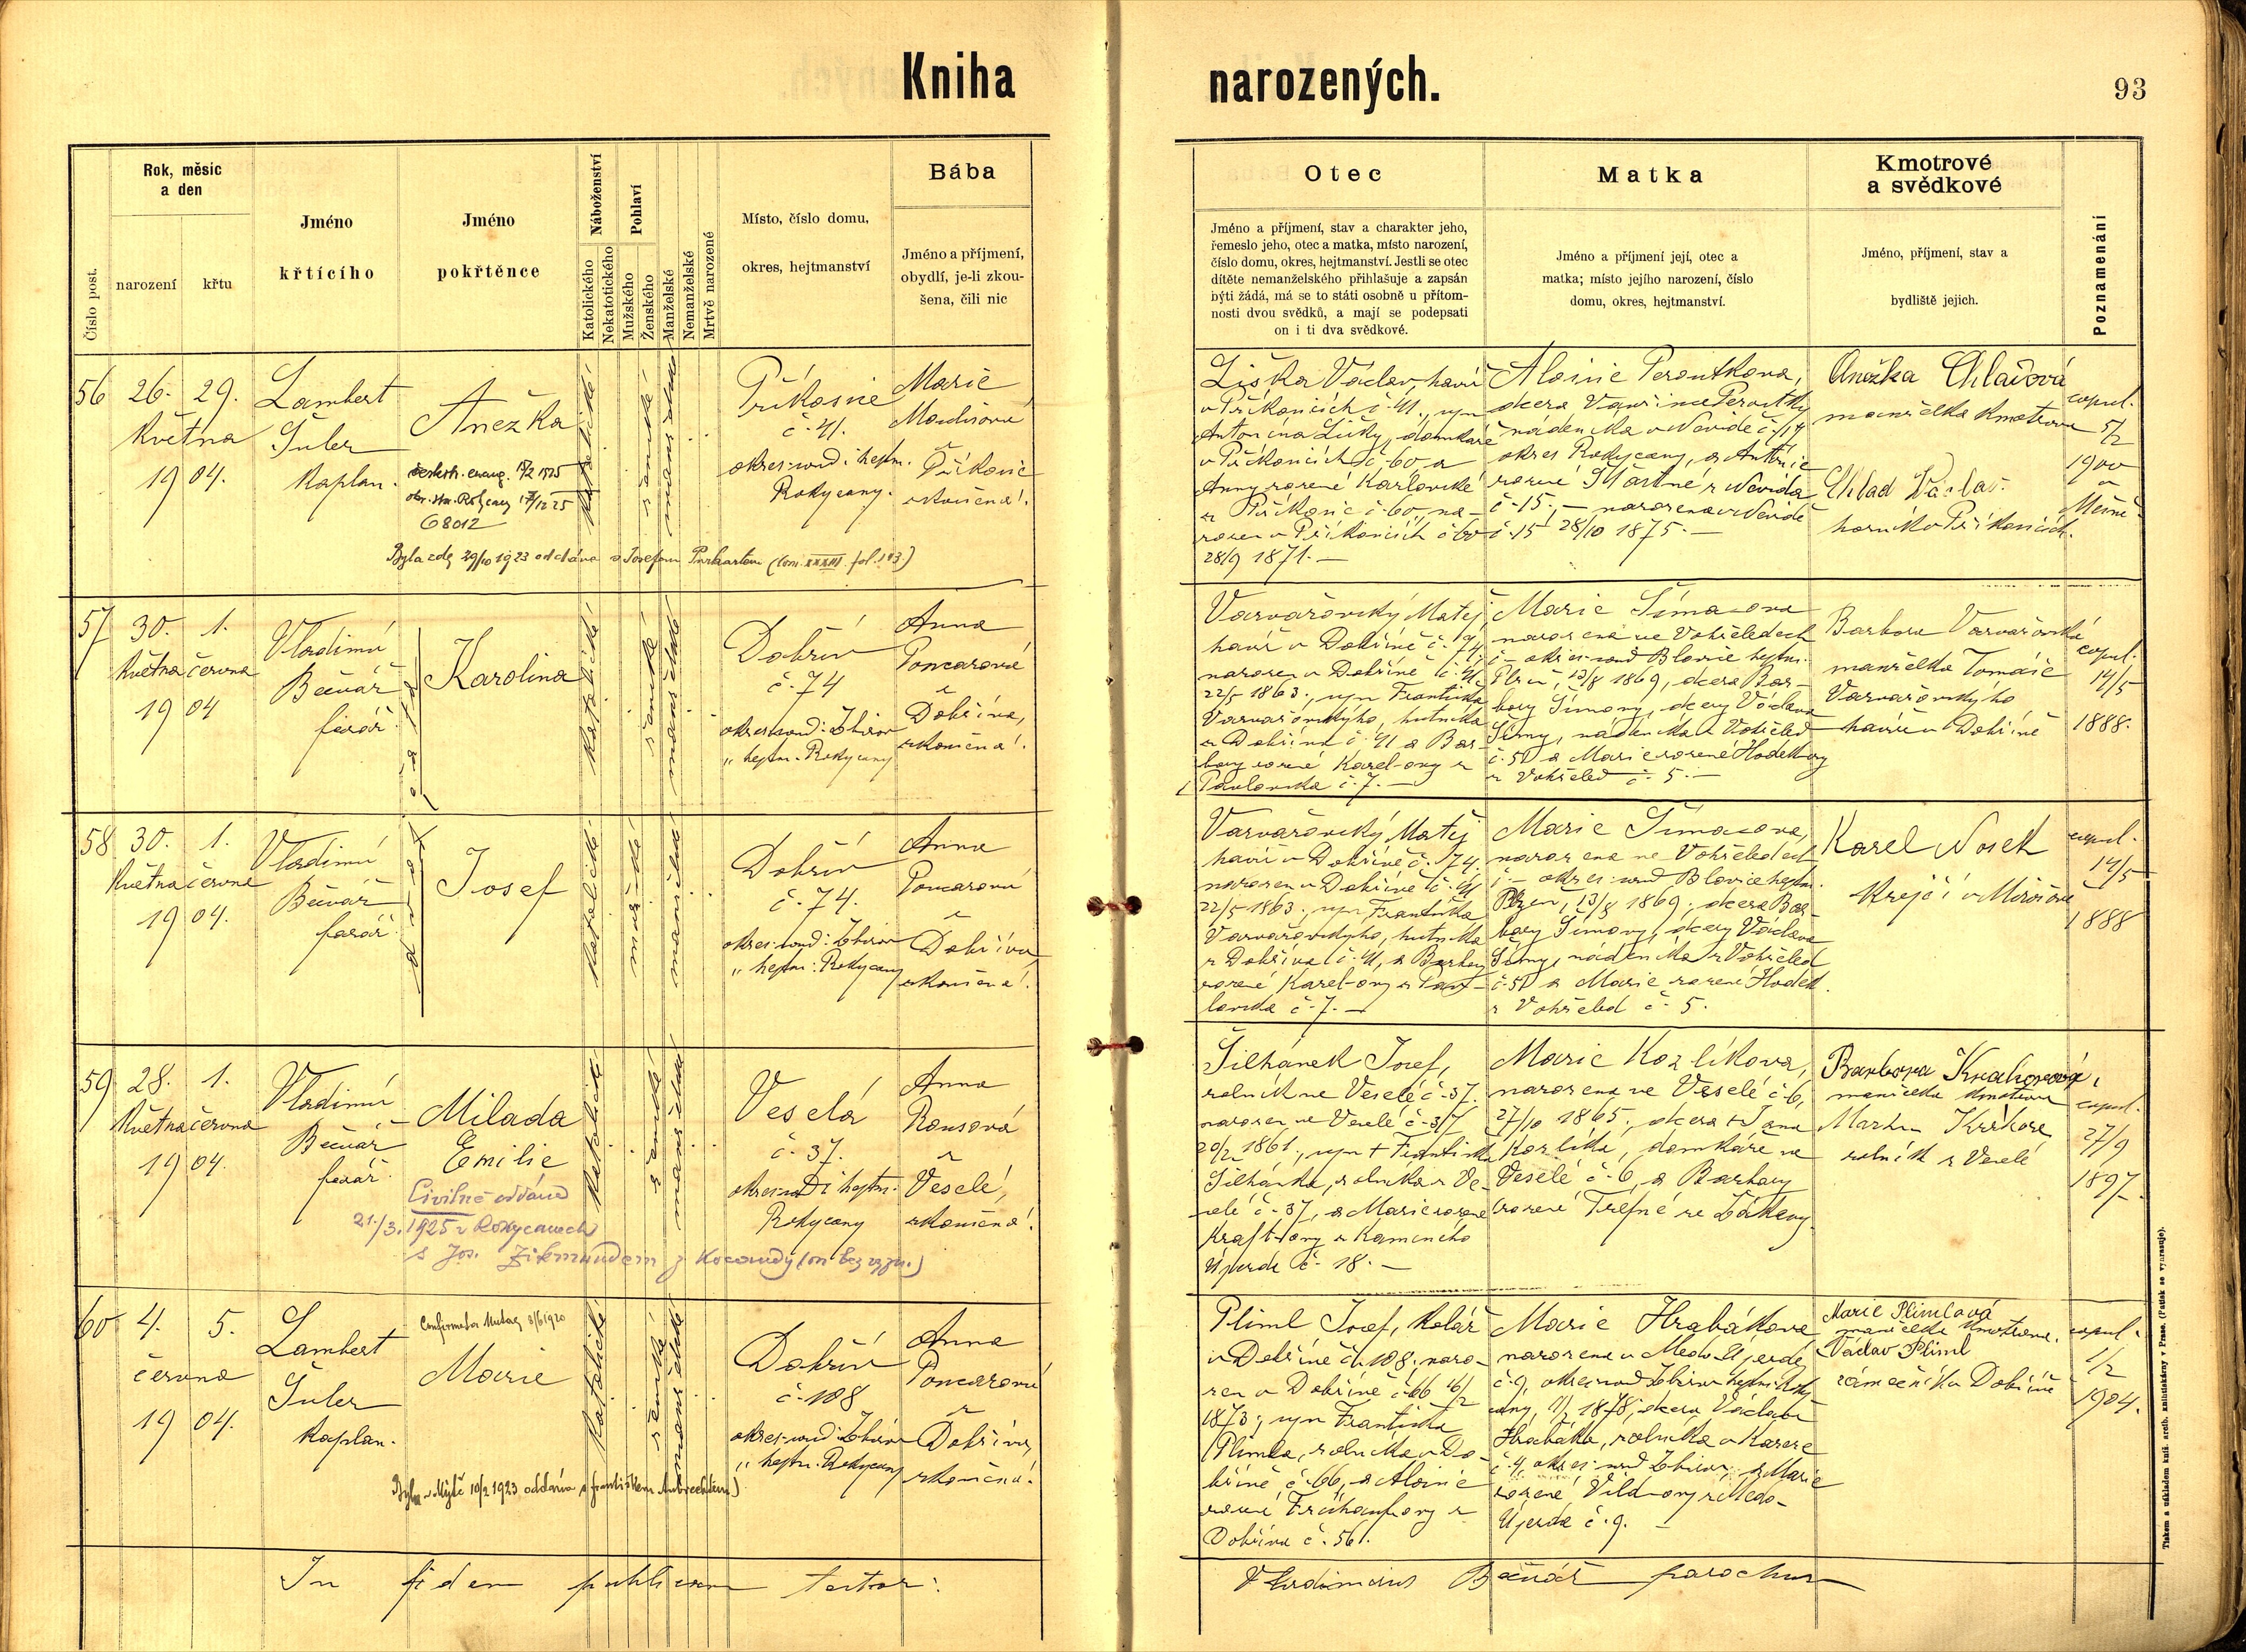 Kniha narozených.
93
Číslo post.
Rok, měsíc
a den
narození
křtu
Jméno
křtícího
Jméno
pokřtěnce
Náboženství
Katolického
Nekatotického
Pohlaví
Mužského
Ženského
Manželské
Nemanželské
Mrtvě narozené
Místo, číslo domu,
okres, hejtmanství
Bába
Jméno a příjmení,
obydlí, je-li zkou-
šena, čili nic
Otec
Jméno a příjmení, stav a charakter jeho,
řemeslo jeho, otec a matka, místo narození,
číslo domu, okres, hejtmanství. Jestli se otec
dítěte nemanželského přihlašuje a zapsán
býti žádá, má se to státi osobně u přítom-
nosti dvou svědků, a mají se podepsati
on i ti dva svědkové.
Matka
Jméno a příjmení její, otec a
matka; místo jejího narození, číslo
domu, okres, hejtmanství.
Kmotrové
a svědkové
Jméno, příjmení, stav a
bydliště jejich.
Poznamenání
56
26. 29.
Května
19 04.
Lambert
Šuler
Kaplan.
Anežka
68012
katolické
ženské
manželské
Příkosice
č. 41.
Rokycany.
Marie
zkoušená.
Byla zde 29/10 1923 oddána s Josefem
Liška Václav, havíř
v Příkosicích č. 41., syn
Antonína Lišky, domkáře
v Příkosicích č. 60, a
Anny rozené
z Příkosic č. 60, na-
rozen v Příkosicích č. 60
28/9 1871. —
Aloisie Peroutkova,
okres Rokycany, a
rozené Šťastné z
č. 15, — narozena
č. 15 28/10 1875. —
Anežka Chladová
manželka kmotrova
Chlad Václav
horník v Příkosicích.
copul.
5/2
1900
57
30. 1.
Května června
19 04
Vladimír
Bečvář
farář.
Karolina
katolické
ženské
manželské
Dobřív
č. 74
okres. soud: Zbirov
„ hejtm. Rokycany
Anna
Poncarová
z
Dobříva,
zkoušená.
Varvařovský Matěj
havíř v Dobřívě č. 74
narozen v Dobřívě č. 41
22/5 1863., syn Františka
Varvařovského, hutníka
z Dobříva č. 41 a Bar-
bory rozené Karel-ovy z
Pavlovska č. 7. —
Marie Šímaova
narozena ve Vohřeledech
č — okres. soud Blovice hejtm.
Plzeň, 13/8 1869, dcera Bar-
bory Šímovy, dcery Václava
Šímy, nádeníka z Vohřeled
č. 51 a Marie rozené Hodek-ovy
z Vohřeled č. 5. —
Barbora Varvařovská
manželka Tomáše
Varvařovského
havíře v Dobřívě
copul.
14/5
1888.
58
30. 1.
Května června
19 04.
Vladimír
Bečvář
farář.
Josef
katolické
mužské
manželské
Dobřív
č. 74.
okres. soud: Zbirov
„ hejtm: Rokycany
Anna
Poncarová
z
Dobříva
zkoušená.
Varvařovský Matěj
havíř v Dobřívě č. 74
narozen v Dobřívě č. 41
22/5 1863., syn Františka
Varvařovského, hutníka
z Dobříva č. 41, a Barbory
rozené Karel-ovy z Pav-
lovska č. 7. —
Marie Šímaova,
narozena ve Vohřeledech
č — okres. soud Blovice hejtm.
Plzeň, 13/8 1869; dcera Bar-
bory Šímovy, dcery Václava
Šímy, nádeníka z Vohřeled
č. 51 a Marie rozené Hodek
z Vohřeled č. 5.
Karel Nosek
krejčí v Mirošově
copul.
14/5
1888
59
28. 1.
Května června
19 04.
Vladimír
Bečvář
farář.
Milada
Emilie
Civilně oddána
21./3. 1925 v Rokycanech
s Jos. Zikmundem z Kocandy (on bez vyzn.)
katolické
ženské
manželské
Veselá
č. 37.
okres. soud i hejtm.
Rokycany
Anna
Rousová
z
Veselé,
zkoušená.
Šilhánek Josef,
rolník ve Veselé č. 37.
narozen ve Veselé č. 37
20/2 1861., syn † Františka
Šilhánka, rolníka z Ve-
selé č. 37, a Marie rozené
Kraft-ovy z Kamenného
Újezda č. 18. —
Marie Kozlíkova,
narozena ve Veselé č. 6,
27/10 1865., dcera † Jana
Kozlíka, domkáře ve
Veselé č. 6, a Barbory
rozené Trefné ze
Barbora
manželka kmotrova
Martin
rolník z Veselé
copul.
27/9
1897.
60
4. 5.
června
19 04.
Lambert
Šuler
kaplan.
Marie
katolické
ženské
manželské
Dobřív
č. 108
okres. soud: Zbirov
„ hejtm. Rokycany
Anna
Poncarová
z
Dobříva,
zkoušená.
Byla v Mýtě 10/2 1923 oddána s Františkem Aubrechtem)
Pliml Josef, kolář
v Dobřívě č. 108. naro-
zen v Dobřívě č. 66
1873; syn Františka
Plimla, rolníka v Do-
břívě č. 66, a Aloisie
rozené Frühauf-ovy z
Dobříva č. 56.
Marie Hrabákova
narozena v Medo-Újezdě,
č. 9, okres. soud Zbirov hejtm. Roky-
cany, 1878; dcera Václava
Hrabáka, rolníka v Kařeze
č. 4, okres. soud Zbirov, a Marie
rozené Vild-ovy z Medo-
Újezda č. 9. —
Marie Plimlová
manželka kmotrova.
Václav Pliml
zámečník v Dobřívě
copul.
1/2
1904.
In fidem publicam testor:
Vladimirus Bečvář parochus
Tiskem a nákladem kníž. arcib. knihtiskárny v Praze. (Padisk se vyhrazuje).